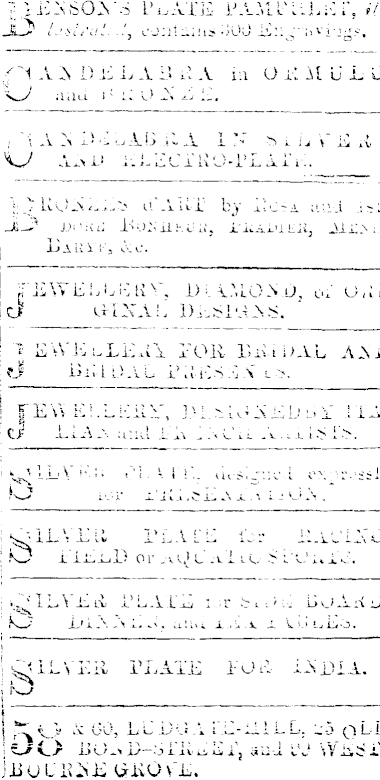 BENSON'S PLATE PAMPHLET, il
lustrated, contains 300 Engravings.
CANDELABRA in ORMULU
and BRONZE.
CANDELABRA IN SILVER
AND ELECTRO-PLATE.
BRONZES d'ART by Rosa and Isi
DORE BONHEUR, PRADIER, MENE
BARYE, &c.
JEWELLERY, DIAMOND, of ORI
GINAL DESIGNS.
JEWELLERY FOR BRIDAL AND
BRIDAL PRESENTS.
JEWELLERY, DESIGNED BY ITA
LIAN and FRENCH ARTISTS.
SILVER PLATE, designed expressl
for PRESENTATION.
SILVER PLATE for RACING
FIELD or AQUATIC SPORTS.
SILVER PLATE for SIDE BOARD
DINNER, and TEA TABLES.
SILVER PLATE FOR INDIA.
58 & 60, LUDGATE-HILL, 25 OLD
BOND-STREET, and 99 WEST
BOURNE GROVE.